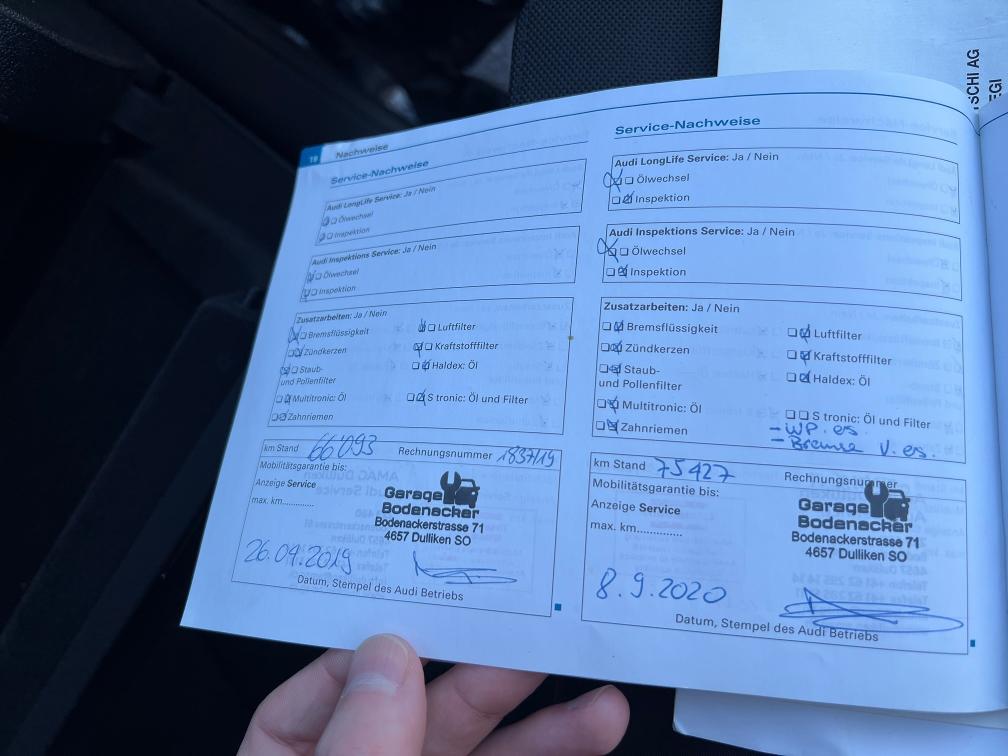 18 Nachweise
Service-Nachweise
Audi LongLife Service: Ja / Nein
Ölwechsel
Inspektion
Audi Inspektions Service: Ja / Nein
Ölwechsel
Inspektion
Zusatzarbeiten: Ja / Nein
Bremsflüssigkeit
Luftfilter
Zündkerzen
Kraftstofffilter
Staub-
und Pollenfilter
Haldex: Öl
Multitronic: Öl
S tronic: Öl und Filter
Zahnriemen
km Stand 66'093 Rechnungsnummer 1837/19
Mobilitätsgarantie bis:
Anzeige Service
max. km..............
Garage
Bodenacker
Bodenackerstrasse 71
4657 Dulliken SO
26.09.2019
Datum, Stempel des Audi Betriebs
Service-Nachweise
Audi LongLife Service: Ja / Nein
Ölwechsel
Inspektion
Audi Inspektions Service: Ja / Nein
Ölwechsel
Inspektion
Zusatzarbeiten: Ja / Nein
Bremsflüssigkeit
Luftfilter
Zündkerzen
Kraftstofffilter
Staub-
und Pollenfilter
Haldex: Öl
Multitronic: Öl
S tronic: Öl und Filter
Zahnriemen
- WP. es.
- Bremse V. es.
km Stand 75427 Rechnungsnummer
Mobilitätsgarantie bis:
Anzeige Service
max. km..............
Garage
Bodenacker
Bodenackerstrasse 71
4657 Dulliken SO
8.9.2020
Datum, Stempel des Audi Betriebs
SCHI AG
EGI